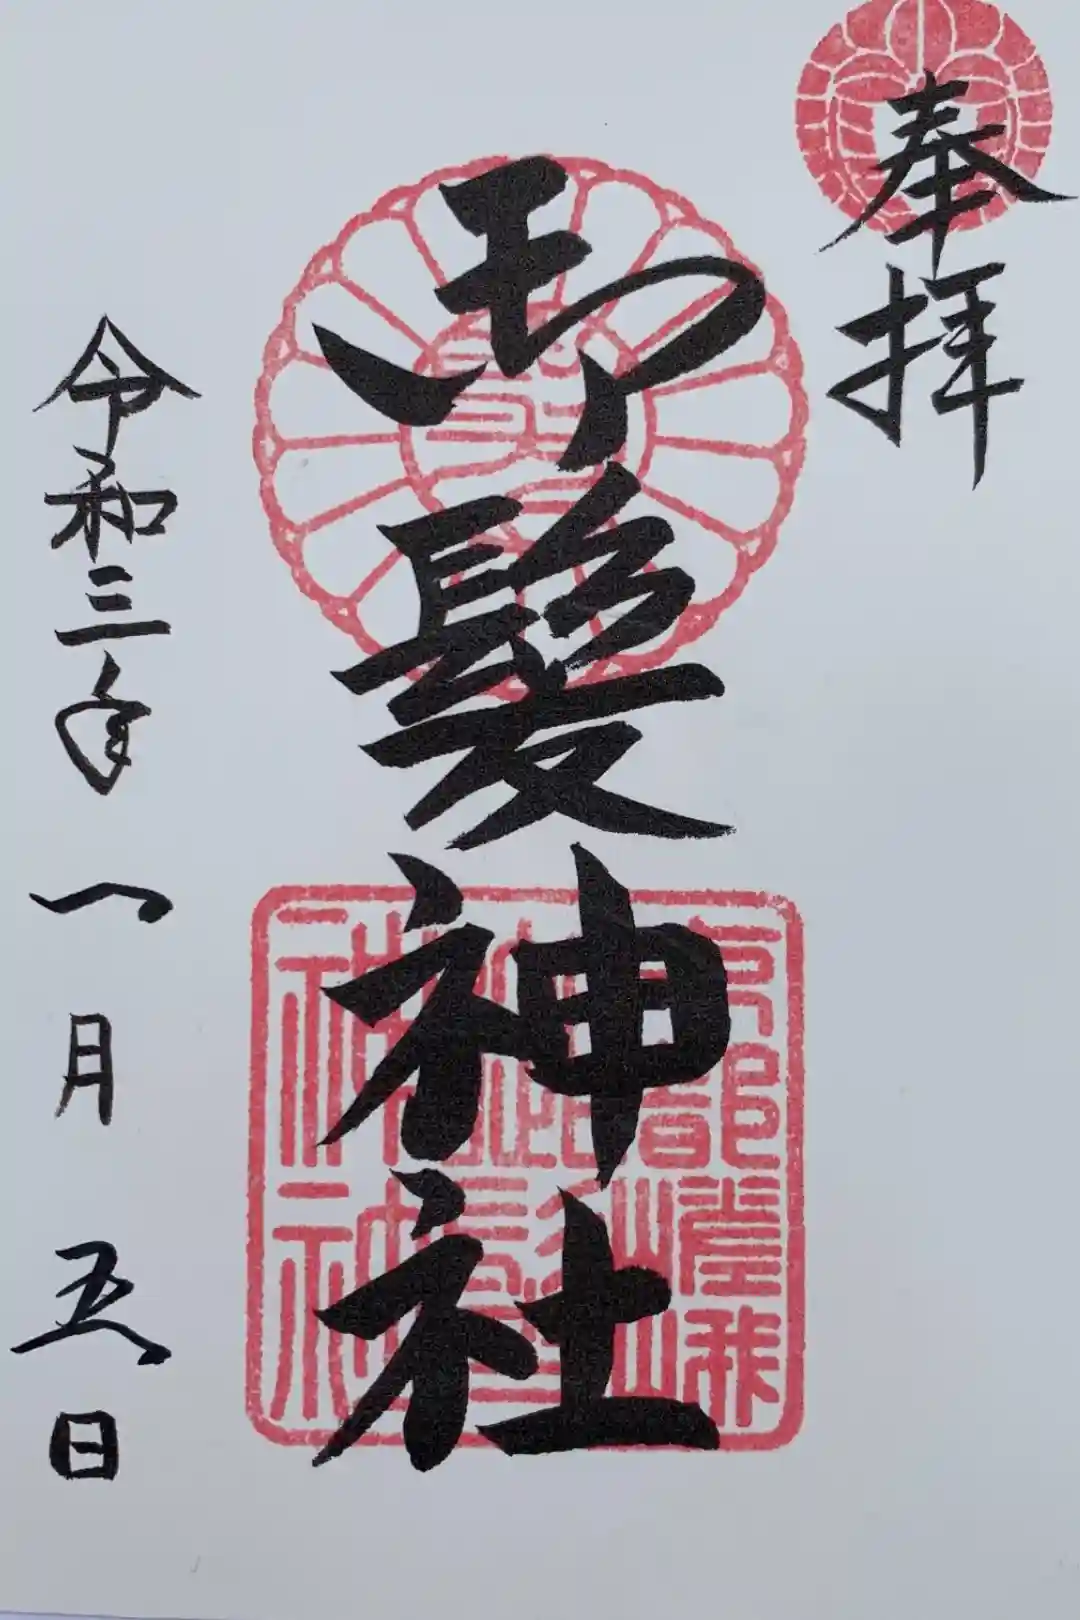 奉拝
御髪神社
京都嵯峨
山御髪
神社
令和三年一月五日